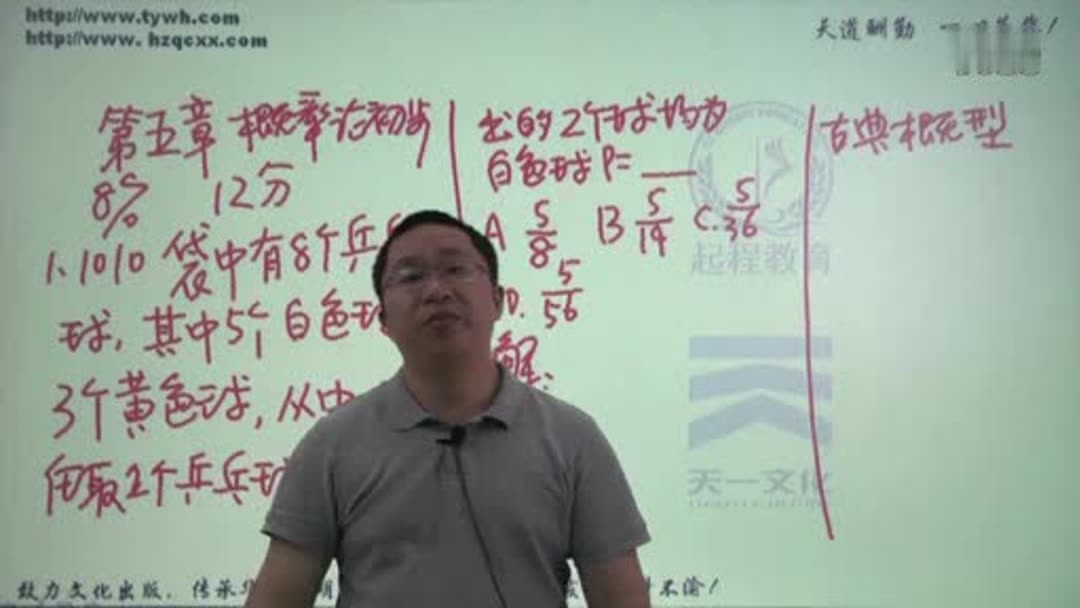 http://www.tywh.com
http://www.hzqcxx.com
天道酬勤
第五章 概率论初步
8% 12分
1.1010 袋中有8个乒
球,其中5个白色球
3个黄色球,从中
任取2个乒乓球
出的2个球均为
白色球 P=
A 5/8 B 5/14 C. 5/36
D. 5/56
解:
古典概型
起程教育
天一文化
致力文化出版,传承
不渝!